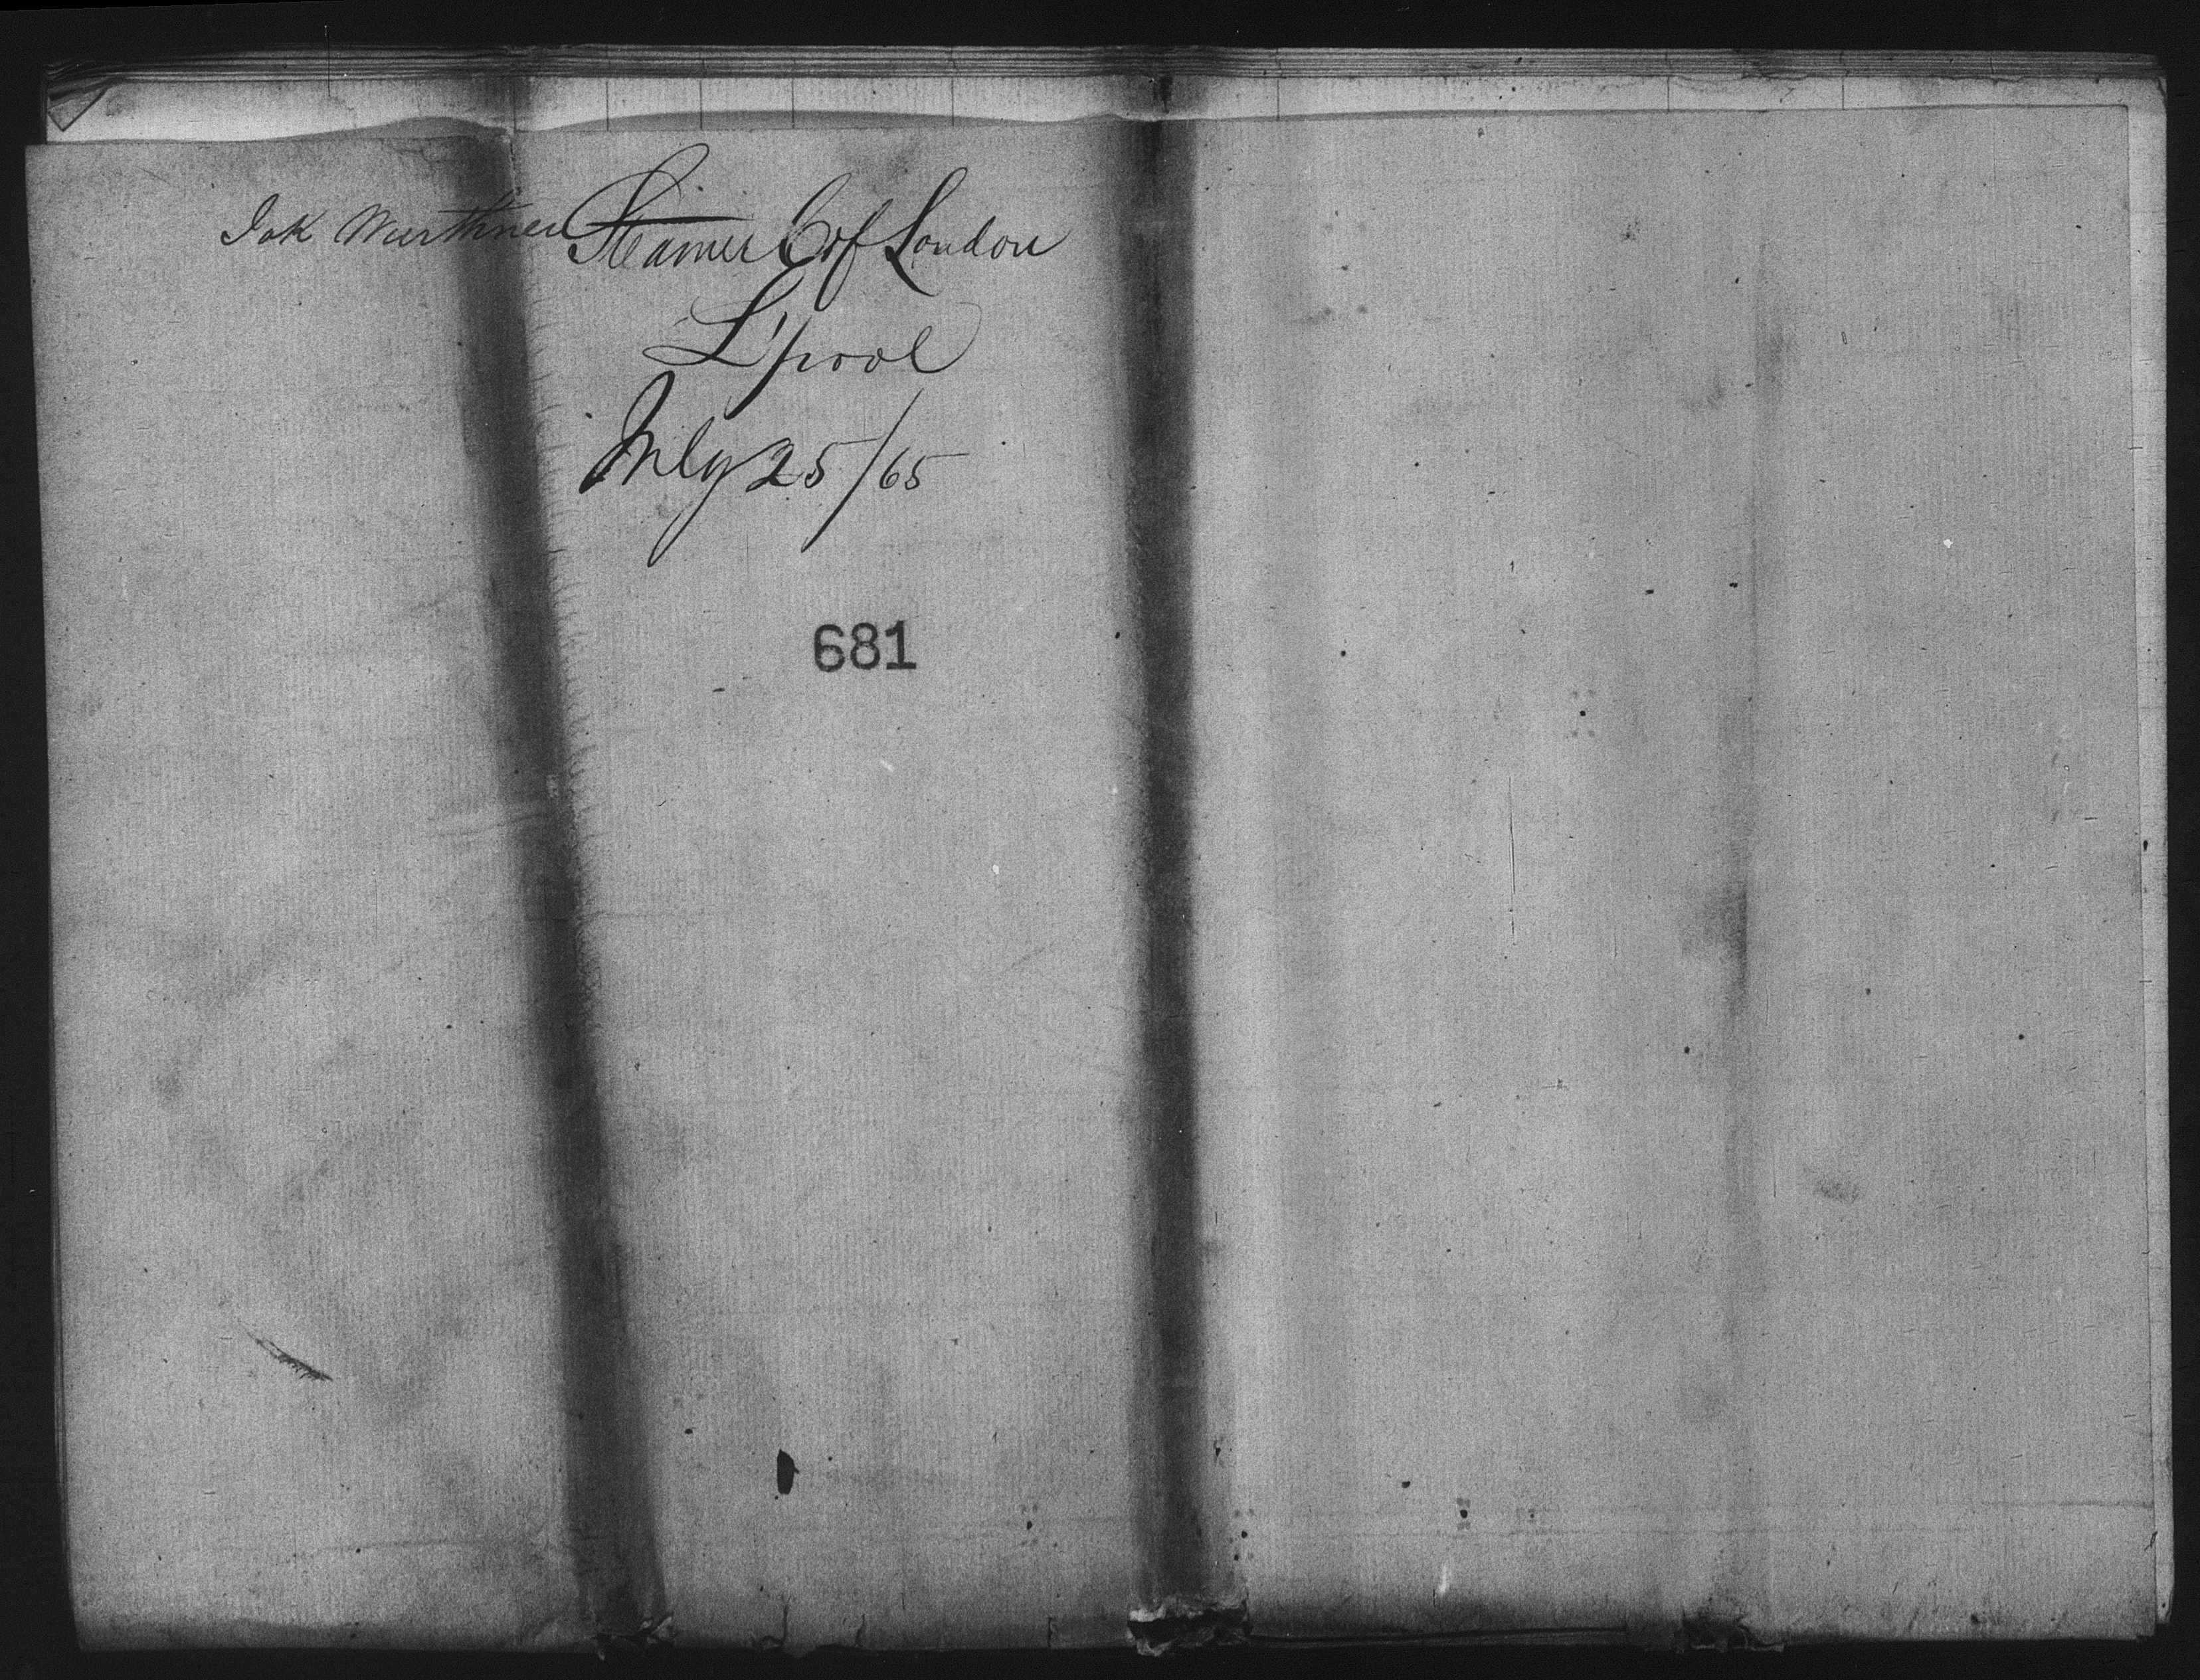 Jak Wurthner
Steamer C of London
L'pool
July 25/65
681